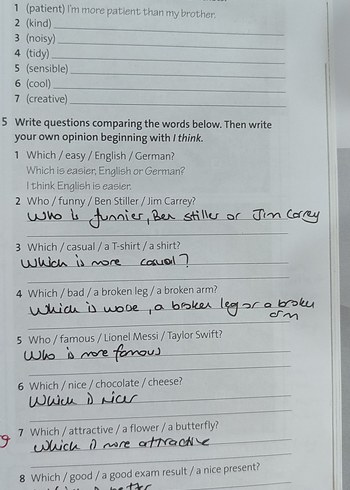 1 (patient) I'm more patient than my brother.
2 (kind)
3 (noisy)
4 (tidy)
5 (sensible)
6 (cool)
7 (creative)
5 Write questions comparing the words below. Then write
your own opinion beginning with I think.
1 Which / easy / English / German?
Which is easier, English or German?
I think English is easier.
2 Who / funny / Ben Stiller / Jim Carrey?
Who is funnier, Ben stiller or Jim Carrey
3 Which / casual / a T-shirt / a shirt?
Which is more casual?
4 Which / bad / a broken leg / a broken arm?
Which is , a broken leg or a broken
arm
5 Who / famous / Lionel Messi / Taylor Swift?
Who is more famous
6 Which / nice / chocolate / cheese?
Which is nicer
7 Which / attractive / a flower / a butterfly?
Which is more attractive
8 Which / good / a good exam result / a nice present?
Which is better